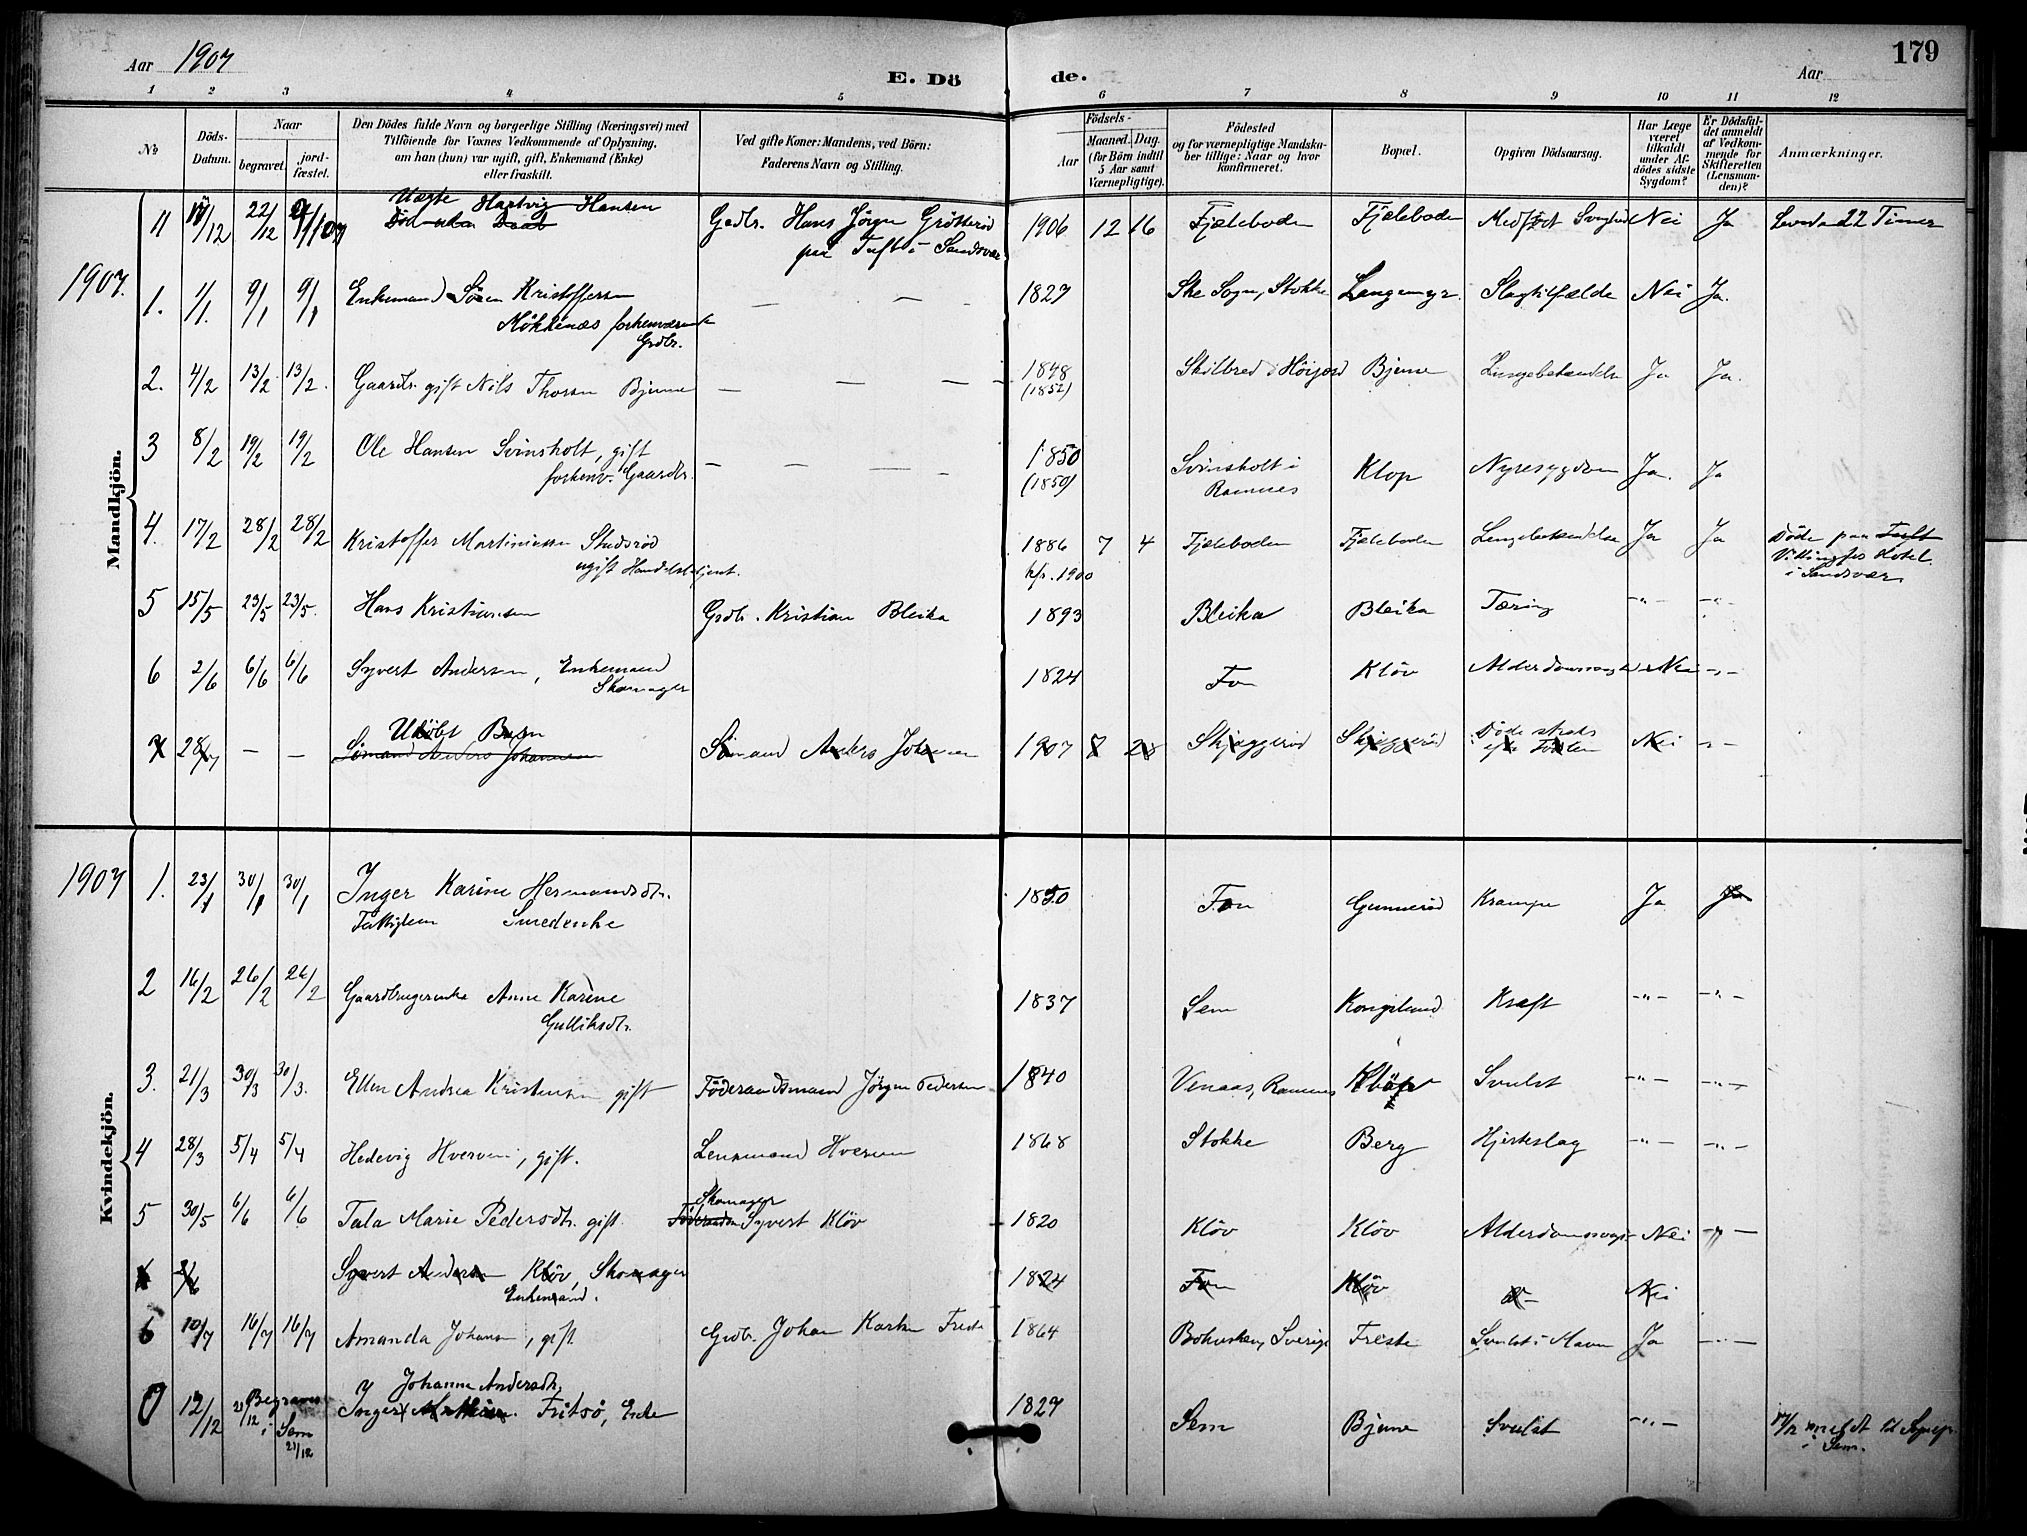 Aar 1907
E. Dö de.
Aar
179
1 2 3 4 5 6 7 8 9 10 11 12
No
Döds-Datum.
Naar
begravet.
jordfæstet.
Den Dödes fulde Navn og borgerlige Stilling (Næringsvei) med
Tilföiende for Voxnes Vedkommende af Oplysning,
om han (hun) var ugift, gift, Enkemand (Enke)
eller fraskilt.
Ved gifte Koner: Mandens, ved Börn:
Faderens Navn og Stilling.
Födsels-
Aar
Maaned. Dag.
(for Börn indtil
5 Aar samt
Værnepligtige).
Födested
og for værnepligtige Mandskaber tillige: Naar og hvor
konfirmeret.
Bopæl.
Opgiven Dödsaarsag.
Har Læge
været
tilkaldt
under Afdödes sidste
Sygdom?
Er Dödsfaldet anmeldt
af Vedkommende for
Skifteretten
(Lensmanden)?
Anmærkninger.
Mandkjön.
Uægte Hartvig Hansen
11 17/12 22/12 Död uden Daab Grdbr. Hans Jörgen Grötteröd 1906 12 16 Fjæleboden Fjæleboden Medfödt Svaghed Nei Ja Levede 22 Timer
paa Tuft i Sandsvær
1907. 1. 1/1 9/1 9/1 Enkemand Sören Kristoffersen — — 1827 Ske Sogn, Stokke Langemyr Slagtilfælde Nei Ja.
Mökkenæs forhenværende
Grdbr.
2. 4/2 13/2 13/2. Gaardbr. gift Nils Thorsen Bjune — — — 1848 Skilbred i Höijord Bjune Lungebetændelse Ja Ja.
(1852)
3 8/2 19/2 19/2 Ole Hansen Svinsholt, gift — — — — 1850 Svinsholt i Klop Nyresygdom Ja. Ja
forhenv. Gaardbr. (1850) Ramnes
4. 17/2 28/2 28/2 Kristoffer Martiniussen Studsröd 1886 7 4 Fjæleboden Fjæleboden Lungebetændelse Ja Ja Döde paa Tuft
ugift Handelsbetjent. kfr. 1900 Vittingfos Hotel
i Sandsvær
5 15/5 23/5 23/5. Hans Kristiansen Grdbr. Kristian Bleika 1893 Bleika Bleika Tæring -"- -"-
6 2/6 6/6 6/6 Syvert Andersen, Enkemand 1824 Fon Klöv Alderdomssvaghed Nei -"-
Skomager
Udöbt Barn
7 28/7 — — Sömand Anders Johansen Sömand Anders Johansen 1907 7 28 Skjæggeröd Skjæggeröd Döde straks Nei -"-
efter Födslen
Kvindekjön.
1907 1. 23/1 30/1 30/1 Inger Karine Hermansdtr. 1850 Fon Gunneröd Krampe Ja Ja
Fattiglem Smedenke
2 16/2 26/2 26/2 Gaardbrugerenke Anne Karine 1837 Sem Kongslund Kræft -"- -"-
Gulliksdtr.
3. 21/3 30/3 30/3. Ellen Andrea Kristensen gift Föderaadsmand Jörgen Pedersen 1840 Venaas, Ramnes Svulst -"- -"-
4 28/3 5/4 5/4 Hedevig Hverven, gift. Lensmand Hverven 1868 Stokke Berg Hjerteslag -"- -"-
Skomager
5 30/5 6/6 6/6 Tala Marie Pedersdtr. gift. Syvert Klöv 1820 Klöv Klöv Alderdomssvagh Nei -"-
2/6 Syvert Andersen Klöv, Skomager 1824 Fon Klöv Nei
Enkemand.
6 10/7 16/7 16/7 Amanda Johansen, gift Grdb. Johan Karlsen Freste 1864 Bohuslen, Sverige Freste Svulst i Maven Ja -"-
Johanne Andersdtr.
7 12/12 21/12 Begravet Inger Fritsö, Enke 1827 Sem Bjune Svulst -"- 17/12 meldt til Sognepr.
i Sem i Sem.
21/12